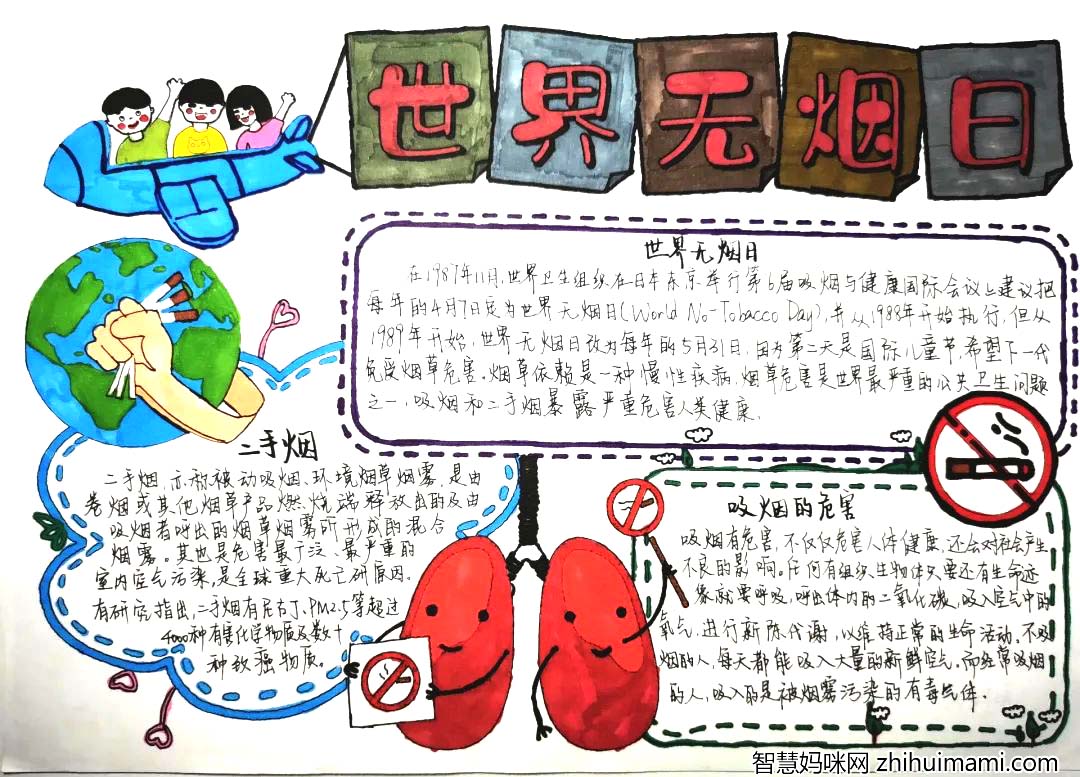 世界无烟日
世界无烟日
在1987年11月,世界卫生组织在日本东京举行第6届吸烟与健康国际会议上建议把
每年的4月7日定为世界无烟日(World No-Tobacco Day),并从1988年开始执行,但从
1989年开始,世界无烟日改为每年的5月31日,因为第二天是国际儿童节,希望下一代
免受烟草危害。烟草依赖是一种慢性疾病,烟草危害是世界最严重的公共卫生问题
之一,吸烟和二手烟暴露严重危害人类健康。
二手烟
二手烟,亦称被动吸烟、环境烟草烟雾,是由
卷烟或其他烟草产品燃烧端释放出的及由
吸烟者呼出的烟草烟雾所形成的混合
烟雾。其也是危害最广泛、最严重的
室内空气污染,是全球重大死亡原因。
有研究指出,二手烟有尼古丁、PM2.5等超过
4000种有害化学物质及数十
种致癌物质。
吸烟的危害
吸烟有危害,不仅仅危害人体健康,还会对社会产生
不良的影响。任何有组织生物体只要还有生命迹
象就要呼吸,呼出体内的二氧化碳,吸入空气中的
氧气,进行新陈代谢,以维持正常的生命活动。不吸
烟的人,每天都能吸入大量的新鲜空气,而经常吸烟
的人,吸入的是被烟雾污染的有毒气体。
智慧妈咪网 zhihuimami.com